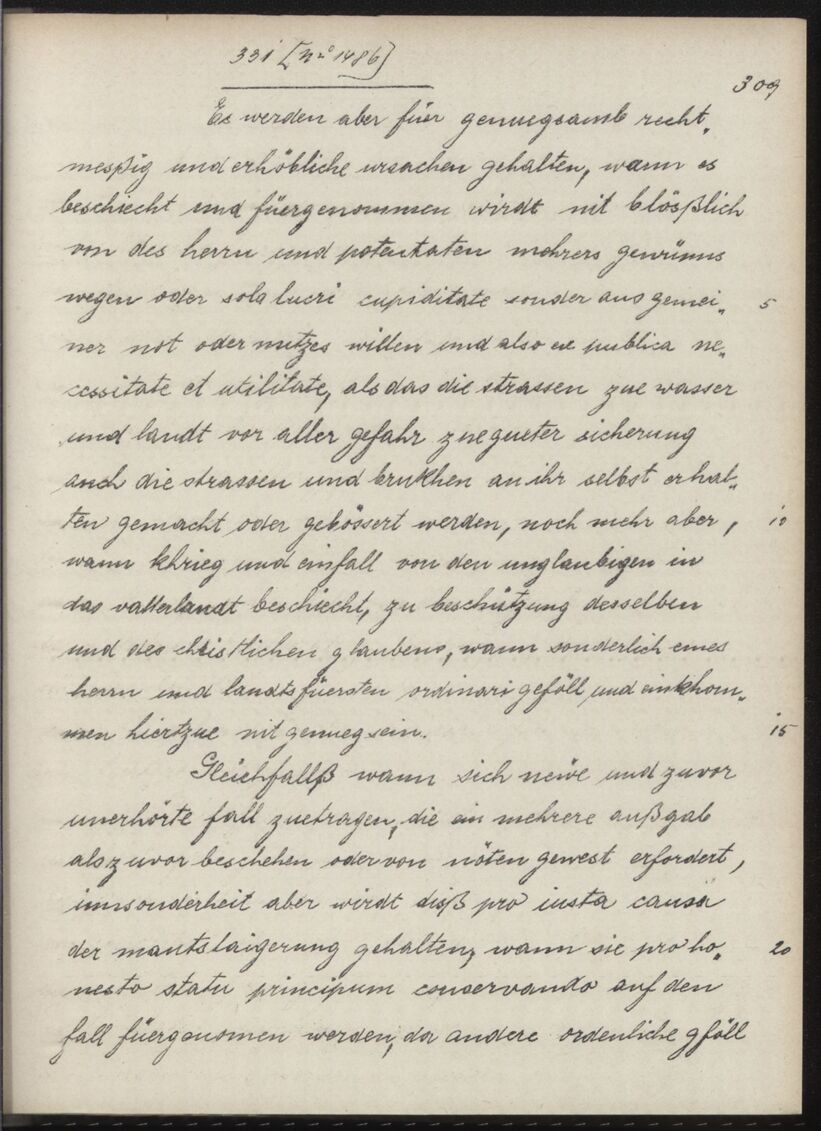 331 [No 1486]
309
Es werden aber für genuegsamb recht„
meßsig und erhöbliche ursachen gehalten, wann es
beschiecht und füergenommen wirdt nit blößlich
von des herrn und potentaten mehrers gewünns
wegen oder sola lucri cupiditate sonder aus gemei„ 5
ner not oder nutzes willen und also ex publica ne„
cessitate et utilitate, als das die strassen zue wasser
und landt vor aller gefahr zue gueter sicherung
auch die strassen und brukhen an ihr selbst erhal„
ten gemacht oder gebössert werden, noch mehr aber, 10
wann khrieg und einfall von den unglaubigen in
das vatterlandt beschiecht, zu beschützung desselben
und des christlichen glaubens, wann sonderlich eines
herrn und landtsfüersten ordinari geföll und einkhom„
men hiertzue nit genueg sein. 15
Gleichfallß wann sich neüe und zuvor
unerhörte fall zuetragen, die ein mehrere außgab
als zuvor beschehen oder von nöten gewest erfordert,
innsonderheit aber wirdt diß pro iusta causa
der mautstaigerung gehalten, wann sie pro ho„ 20
nesto statu principum conservando auf den
fall füergenomen werden, da andere ordenliche gföll